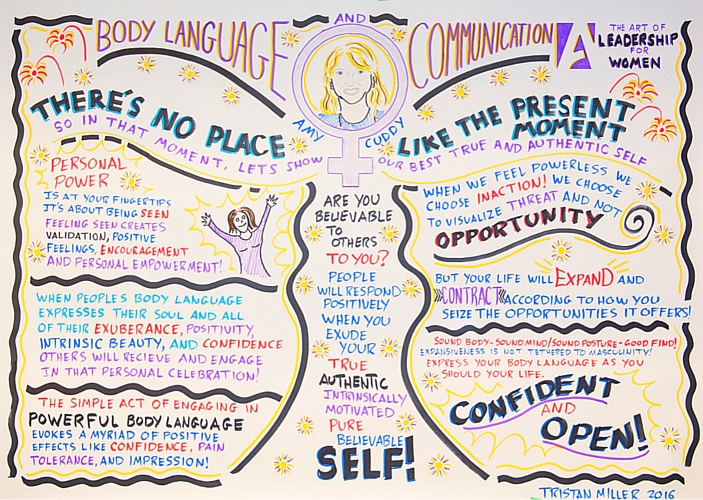 BODY LANGUAGE
AND
COMMUNICATION
A
THE ART OF
LEADERSHIP
FOR
WOMEN
THERE'S NO PLACE
LIKE THE PRESENT
MOMENT
AMY CUDDY
SO IN THAT MOMENT, LETS SHOW
OUR BEST TRUE AND AUTHENTIC SELF
PERSONAL
POWER
IS AT YOUR FINGERTIPS
IT'S ABOUT BEING SEEN
FEELING SEEN CREATES
VALIDATION, POSITIVE
FEELINGS, ENCOURAGEMENT
AND PERSONAL EMPOWERMENT!
WHEN PEOPLE'S BODY LANGUAGE
EXPRESSES THEIR SOUL AND ALL
OF THEIR EXUBERANCE, POSITIVITY,
INTRINSIC BEAUTY, AND CONFIDENCE
OTHERS WILL RECIEVE AND ENGAGE
IN THAT PERSONAL CELEBRATION!
THE SIMPLE ACT OF ENGAGING IN
POWERFUL BODY LANGUAGE
EVOKES A MYRIAD OF POSITIVE
EFFECTS LIKE CONFIDENCE, PAIN
TOLERANCE, AND IMPRESSION!
ARE YOU
BELIEVABLE
TO
OTHERS
TO YOU?
PEOPLE
WILL RESPOND
POSITIVELY
WHEN YOU
EXUDE
YOUR
TRUE
AUTHENTIC
INTRINSICALLY
MOTIVATED
PURE
BELIEVABLE
SELF!
WHEN WE FEEL POWERLESS WE
CHOOSE INACTION! WE CHOOSE
TO VISUALIZE THREAT AND NOT
OPPORTUNITY
BUT YOUR LIFE WILL EXPAND AND
CONTRACT ACCORDING TO HOW YOU
SEIZE THE OPPORTUNITIES IT OFFERS!
SOUND BODY-SOUND MIND/SOUND POSTURE-GOOD FIND!
EXPANSIVENESS IS NOT TETHERED TO MASCULINITY!
EXPRESS YOUR BODY LANGUAGE AS YOU
SHOULD YOUR LIFE.
CONFIDENT
AND
OPEN!
TRISTAN MILLER 2016